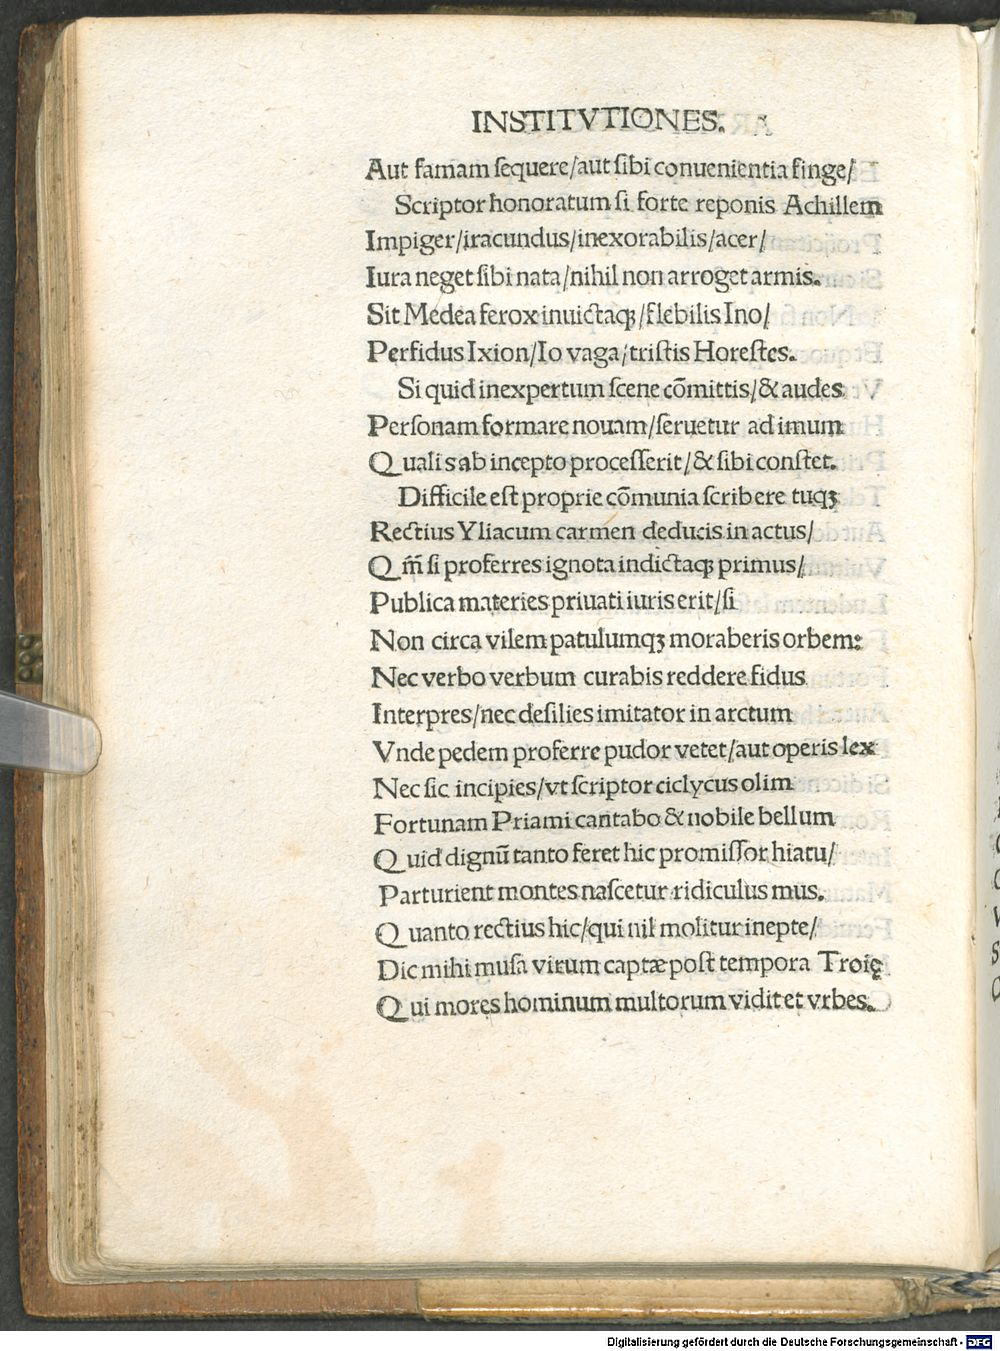 INSTITVTIONES.
Aut famam ſequere/aut ſibi conuenientia finge/
Scriptor honoratum ſi forte reponis Achillem
Impiger/iracundus/inexorabilis/acer/
Iura neget ſibi nata/nihil non arroget armis.
Sit Medea ferox inuictaqꝫ/flebilis Ino/
Perfidus Ixion/Io vaga/triſtis Horeſtes.
Si quid inexpertum ſcene cõmittis/&audes
Perſonam formare nouam/ſeruetur ad imum
Qualis ab incepto proceſſerit/&ſibi conſtet.
Difficile eſt proprie cõmunia ſcribere tuqꝫ
Rectius Yliacum carmen deducis in actus/
Qm̃ ſi proferres ignota indictaqꝫ primus/
Publica materies priuati iuris erit/ſi
Non circa vilem patulumqꝫ moraberis orbem:
Nec verbo verbum curabis reddere fidus
Interpres/nec deſilies imitator in arctum
Vnde pedem proferre pudor vetet/aut operis lex
Nec ſic incipies/vt ſcriptor ciclycus olim
Fortunam Priami cantabo &nobile bellum
Quid dignũ tanto feret hic promiſſor hiatu/
Parturient montes naſcetur ridiculus mus.
Quanto rectius hic/qui nil molitur inepte/
Dic mihi muſa virum captæ poſt tempora Troię
Qui mores hominum multorum vidit et vrbes.
Digitalisierung gefördert durch die Deutsche Forschungsgemeinschaft - DFG